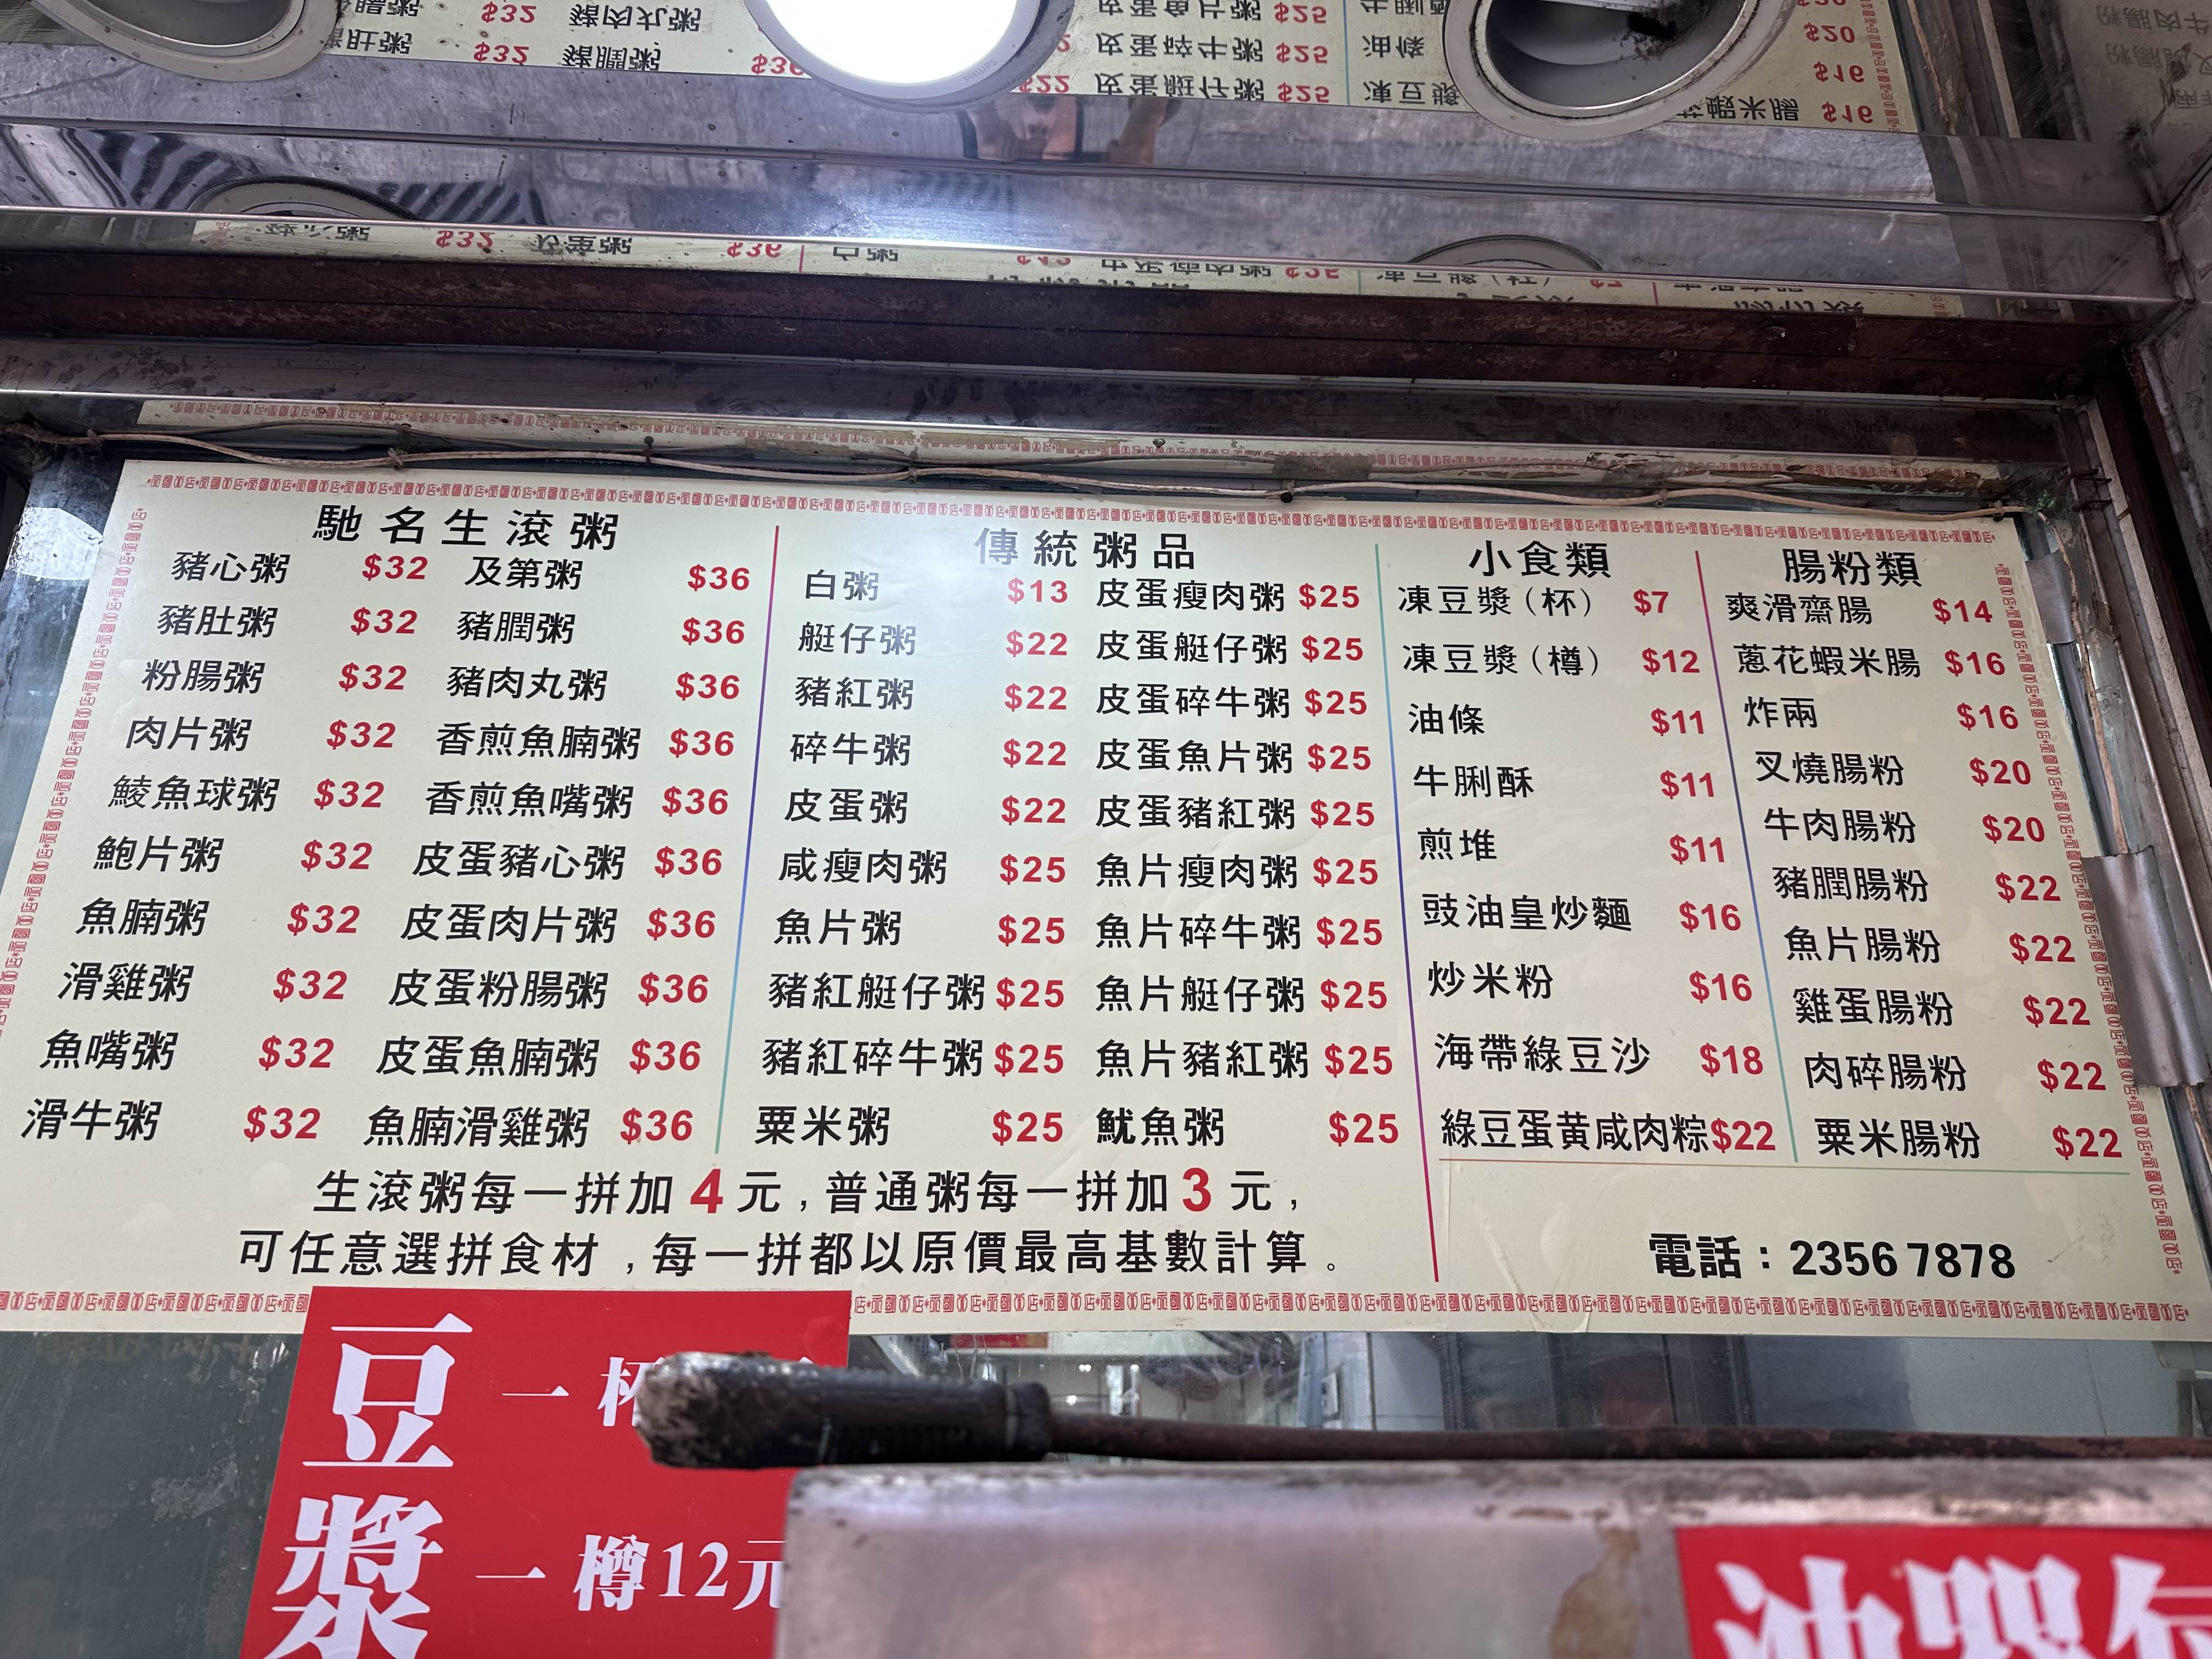 馳名生滾粥
豬心粥 $32 及第粥 $36
豬肚粥 $32 豬膶粥 $36
粉腸粥 $32 豬肉丸粥 $36
肉片粥 $32 香煎魚腩粥 $36
鯪魚球粥 $32 香煎魚嘴粥 $36
鮑片粥 $32 皮蛋豬心粥 $36
魚腩粥 $32 皮蛋肉片粥 $36
滑雞粥 $32 皮蛋粉腸粥 $36
魚嘴粥 $32 皮蛋魚腩粥 $36
滑牛粥 $32 魚腩滑雞粥 $36
傳統粥品
白粥 $13 皮蛋瘦肉粥 $25
艇仔粥 $22 皮蛋艇仔粥 $25
豬紅粥 $22 皮蛋碎牛粥 $25
碎牛粥 $22 皮蛋魚片粥 $25
皮蛋粥 $22 皮蛋豬紅粥 $25
咸瘦肉粥 $25 魚片瘦肉粥 $25
魚片粥 $25 魚片碎牛粥 $25
豬紅艇仔粥 $25 魚片艇仔粥 $25
豬紅碎牛粥 $25 魚片豬紅粥 $25
粟米粥 $25 魷魚粥 $25
小食類
凍豆漿（杯） $7
凍豆漿（樽） $12
油條 $11
牛脷酥 $11
煎堆 $11
豉油皇炒麵 $16
炒米粉 $16
海帶綠豆沙 $18
綠豆蛋黄咸肉粽 $22
腸粉類
爽滑齋腸 $14
蔥花蝦米腸 $16
炸兩 $16
叉燒腸粉 $20
牛肉腸粉 $20
豬膶腸粉 $22
魚片腸粉 $22
雞蛋腸粉 $22
肉碎腸粉 $22
粟米腸粉 $22
生滾粥每一拼加4元，普通粥每一拼加3元，
可任意選拼食材，每一拼都以原價最高基數計算。
電話：2356 7878
豆漿
一杯
一樽12元